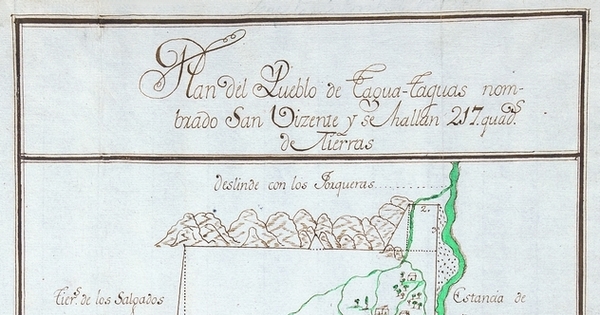 Plan del Pueblo de Tagua-Taguas nom-
brado San Vizente y se hallan 217. quad.s
de Tierras
deslinde con los Jorqueras
2.
Tier.s de los Salgados
Estancia de